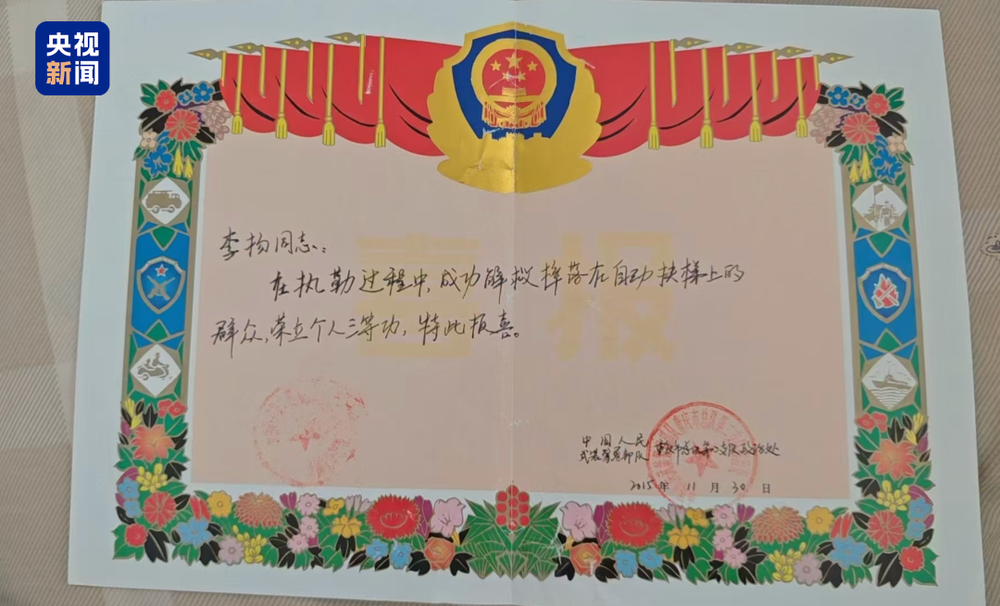 央视
新闻
喜报
李扬同志：
在执勤过程中，成功解救摔落在自动扶梯上的
群众，荣立个人三等功，特此报喜。
中国人民
武装警察部队 重庆市总队第二支队政治处
2015年11月30日